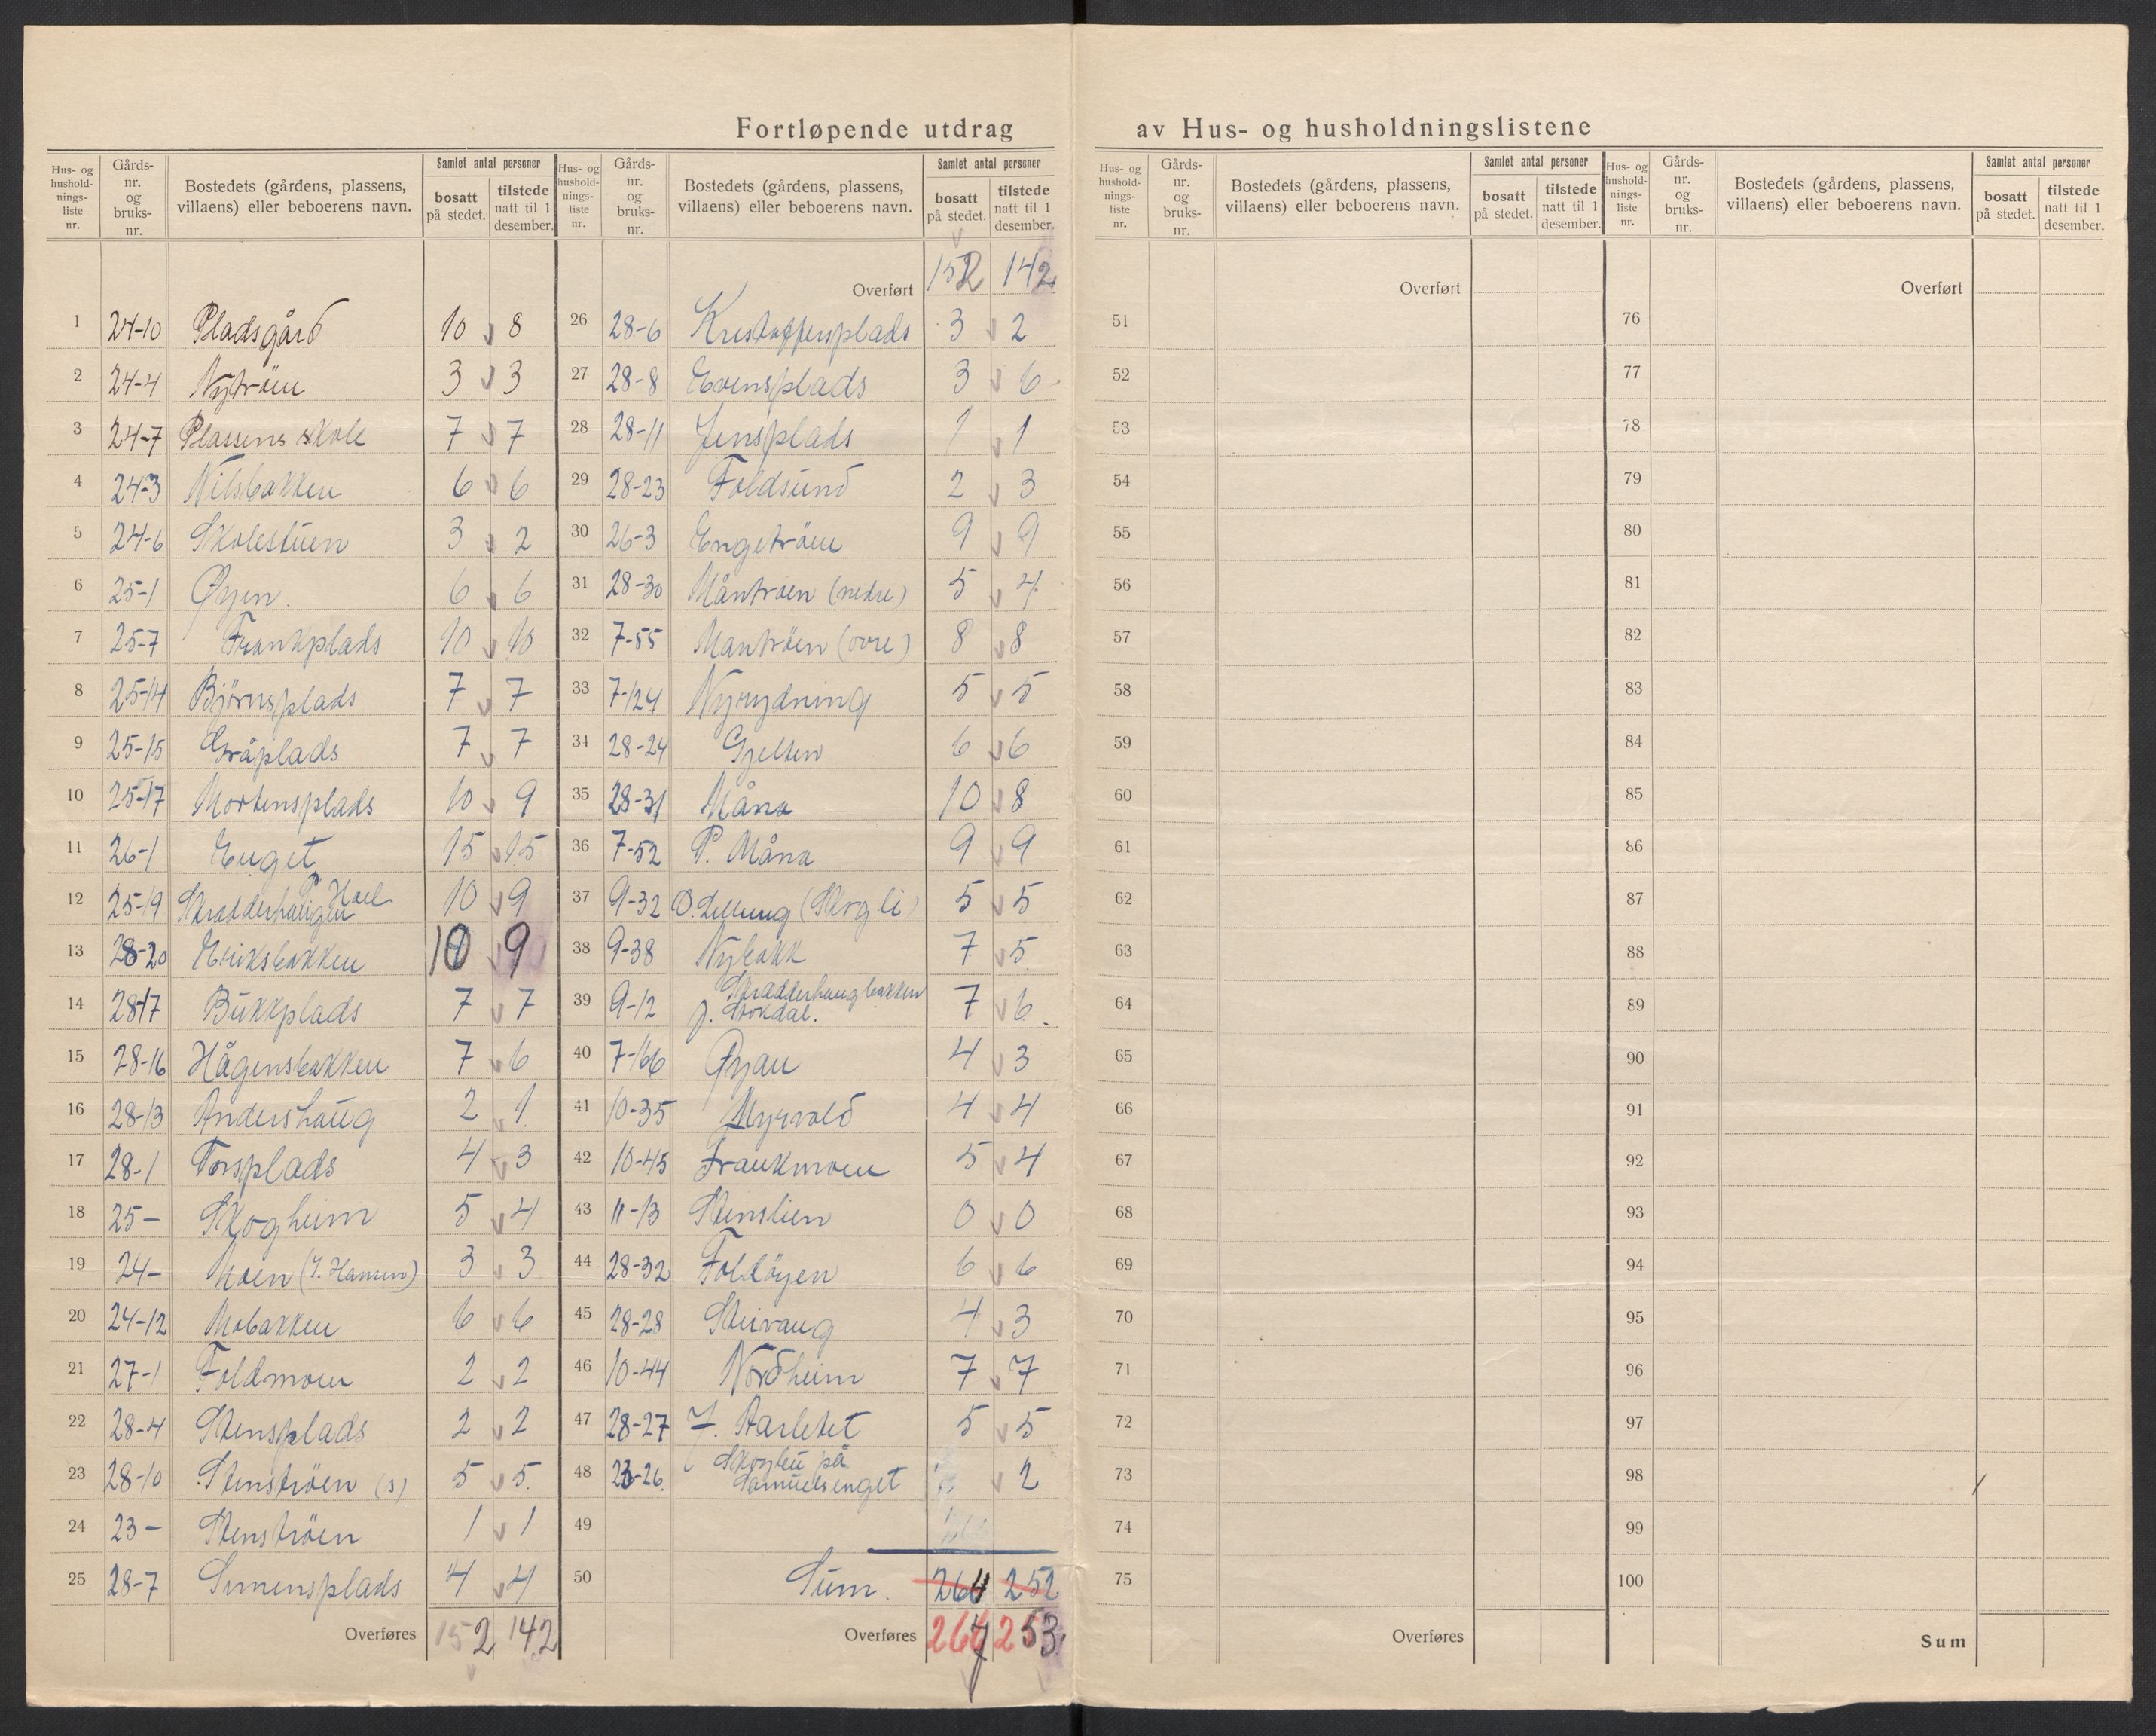 Fortløpende utdrag av Hus- og husholdningslistene
Hus- og hushold-nings-liste nr. Gårds-nr. og bruks-nr. Bostedets (gårdens, plassens, villaens) eller beboerens navn. Samlet antal personer bosatt på stedet. tilstede natt til 1 desember.
1 24-10 Pladsgård 10 8
2 24-4 Nytrøen 3 3
3 24-7 Plassens skole 7 7
4 24-3 Nilsbakken 6 6
5 24-6 Skolestuen 3 2
6 25-1 Øyen. 6 6
7 25-7 Frankplads 10 10
8 25-14 Björnsplads 7 7
9 25-15 Gråplads 7 7
10 25-17 Mortensplads 10 9
11 26-1 Enget 15 15
12 25-19 Skradderhaugen P. Hoel 10 9
13 28-20 Eriksbakken 10 9
14 28-17 Bukkplads 7 7
15 28-16 Hågensbakken 7 6
16 28-13 Andershaug 2 1
17 28-1 Torsplads 4 3
18 25- Skogheim 5 4
19 24- Moen (J. Hansen) 3 3
20 24-12 Mobakken 6 6
21 27-1 Foldmoen 2 2
22 28-4 Stensplads 2 2
23 28-10 Stenströen (s) 5 5
24 23- Stenströen 1 1
25 28-7 Simensplads 4 4
Overføres 152 142
Hus- og hushold-nings-liste nr. Gårds-nr. og bruks-nr. Bostedets (gårdens, plassens, villaens) eller beboerens navn. Samlet antal personer bosatt på stedet. tilstede natt til 1 desember.
Overført 152 142
26 28-6 Kristoffersplads 3 2
27 28-8 Evensplads 3 6
28 28-11 Jensplads 1 1
29 28-23 Foldsund 2 3
30 26-3 Engetröen 9 9
31 28-30 Måntröen (nedre) 5 4
32 7-55 Mantröen (øvre) 8 8
33 7-124 Nyrydning 5 5
34 28-24 Gjelten 6 6
35 28-31 Måna 10 8
36 7-52 P. Måna 9 9
37 9-32 (Skogli) 5 5
38 9-38 Nybakk 7 5
39 9-12 Skradderhaugbakken J. Stokdal. 7 6
40 7-166 Øyan 4 3
41 10-35 Myrvold 4 4
42 10-45 Frankmoen 5 4
43 11-13 Stenslien 0 0
44 28-32 Foldöyen 6 6
45 28-28 Steivang 4 3
46 10-44 Nordheim 7 7
47 28-27 J. 5 5
48 23-26 på Samuelsenget 2
49
50 Sum. 264 252
Overføres 267 253
Hus- og hushold-nings-liste nr. Gårds-nr. og bruks-nr. Bostedets (gårdens, plassens, villaens) eller beboerens navn. Samlet antal personer bosatt på stedet. tilstede natt til 1 desember.
Overført
51
52
53
54
55
56
57
58
59
60
61
62
63
64
65
66
67
68
69
70
71
72
73
74
75
Overføres
Hus- og hushold-nings-liste nr. Gårds-nr. og bruks-nr. Bostedets (gårdens, plassens, villaens) eller beboerens navn. Samlet antal personer bosatt på stedet. tilstede natt til 1 desember.
Overført
76
77
78
79
80
81
82
83
84
85
86
87
88
89
90
91
92
93
94
95
96
97
98
99
100
Sum